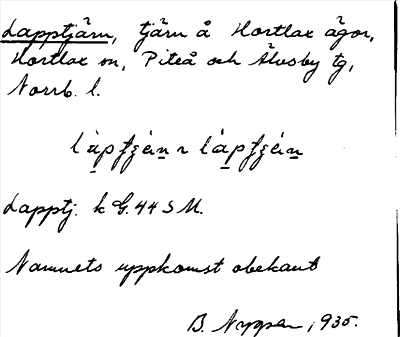 Lapptjärn, tjärn å Hortlax ägor,
Hortlax sn, Piteå och Älvsby tg,
Norrb. l.
Lapptj. k G. 44 S M.
Namnets uppkomst obekant
B. Nygren, 1935.